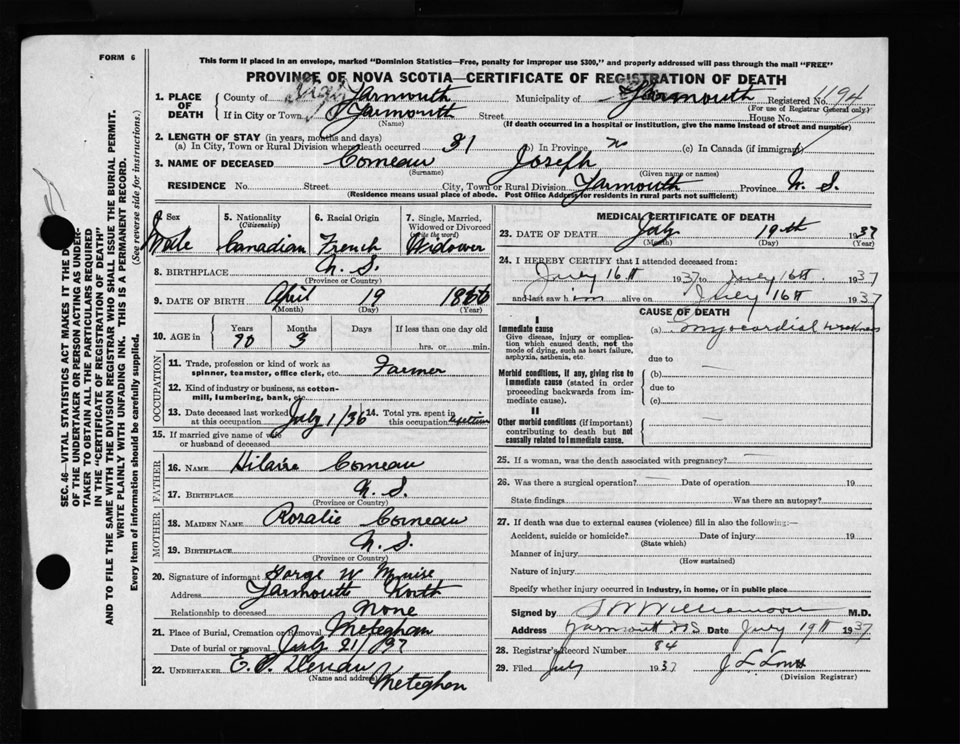 FORM 6
This form if placed in an envelope, marked "Dominion Statistics—Free, penalty for improper use $300," and properly addressed will pass through the mail "FREE"
PROVINCE OF NOVA SCOTIA—CERTIFICATE OF REGISTRATION OF DEATH
1. PLACE OF DEATH
County of Yarmouth Municipality of Yarmouth Registered No. 1194
(For use of Registrar General only)
If in City or Town Yarmouth Street House No.
(Name) (If death occurred in a hospital or institution, give the name instead of street and number)
2. LENGTH OF STAY (in years, months and days)
(a) In City, Town or Rural Division where death occurred 31 (b) In Province (c) In Canada (if immigrant)
3. NAME OF DECEASED Comeau Joseph
(Surname) (Given name or names)
RESIDENCE No. Street City, Town or Rural Division Yarmouth Province N. S.
(Residence means usual place of abode. Post Office Address for residents in rural parts not sufficient)
SEC. 46—VITAL STATISTICS ACT MAKES IT THE D
OF THE UNDERTAKER OR PERSON ACTING AS UNDER-
TAKER TO OBTAIN ALL THE PARTICULARS REQUIRED
IN THE "CERTIFICATE OF REGISTRATION OF DEATH"
AND TO FILE THE SAME WITH THE DIVISION REGISTRAR WHO SHALL ISSUE THE BURIAL PERMIT.
WRITE PLAINLY WITH UNFADING INK. THIS IS A PERMANENT RECORD.
Every item of information should be carefully supplied. (See reverse side for instructions.)
Sex Male
5. Nationality (Citizenship) Canadian
6. Racial Origin French
7. Single, Married, Widowed or Divorced (Write the word) Widower
8. BIRTHPLACE N. S.
(Province or Country)
9. DATE OF BIRTH April 19
(Month) (Day) (Year)
10. AGE in Years 70 Months 3 Days If less than one day old hrs. or min.
OCCUPATION
11. Trade, profession or kind of work as spinner, teamster, office clerk, etc. Farmer
12. Kind of industry or business, as cotton-mill, lumbering, bank, etc.
13. Date deceased last worked at this occupation July 1/36 14. Total yrs. spent in this occupation
15. If married give name of wife or husband of deceased
FATHER
16. NAME Hilaire Comeau
17. BIRTHPLACE N. S.
(Province or Country)
MOTHER
18. MAIDEN NAME Rosalie Comeau
19. BIRTHPLACE N. S.
(Province or Country)
20. Signature of informant W Muise
Address Yarmouth North
Relationship to deceased None
21. Place of Burial, Cremation or Removal Meteghan
Date of burial or removal July 21/37
22. UNDERTAKER
(Name and address) Meteghan
MEDICAL CERTIFICATE OF DEATH
23. DATE OF DEATH July 19th 1937
(Month) (Day) (Year)
24. I HEREBY CERTIFY that I attended deceased from:
July 16th 1937 to July 16th. 1937
and last saw him alive on July 16th 1937
CAUSE OF DEATH
I
Immediate cause
Give disease, injury or complication which caused death, not the mode of dying, such as heart failure, asphyxia, asthenia, etc.
(a) Myocardial weakness
due to
Morbid conditions, if any, giving rise to immediate cause (stated in order proceeding backwards from immediate cause).
(b)
due to
(c)
II
Other morbid conditions (if important) contributing to death but not causally related to immediate cause.
25. If a woman, was the death associated with pregnancy?
26. Was there a surgical operation? Date of operation 19
State findings Was there an autopsy?
27. If death was due to external causes (violence) fill in also the following:—
Accident, suicide or homicide? Date of injury 19
(State which)
Manner of injury
(How sustained)
Nature of injury
Specify whether injury occurred in industry, in home, or in public place
Signed by Williamson M.D.
Address Yarmouth N S Date July 19th 1937
28. Registrar's Record Number 84
29. Filed July 1937
(Division Registrar)